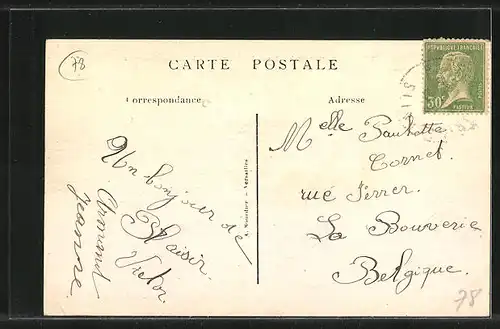 78
CARTE POSTALE
Correspondance
Adresse
REPUBLIQUE FRANÇAISE
30c
PASTEUR
Melle Paulette
Cornet
rue Ferrer
La Bouverie
Belgique.
Un bonjour de
Plaisir.
Victor
Armand
Jeanne
Versailles
78